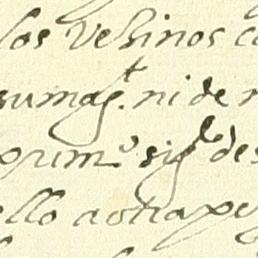 los Vesinos
sumag.t ni de
prim.o sig.lo de
ello a otra